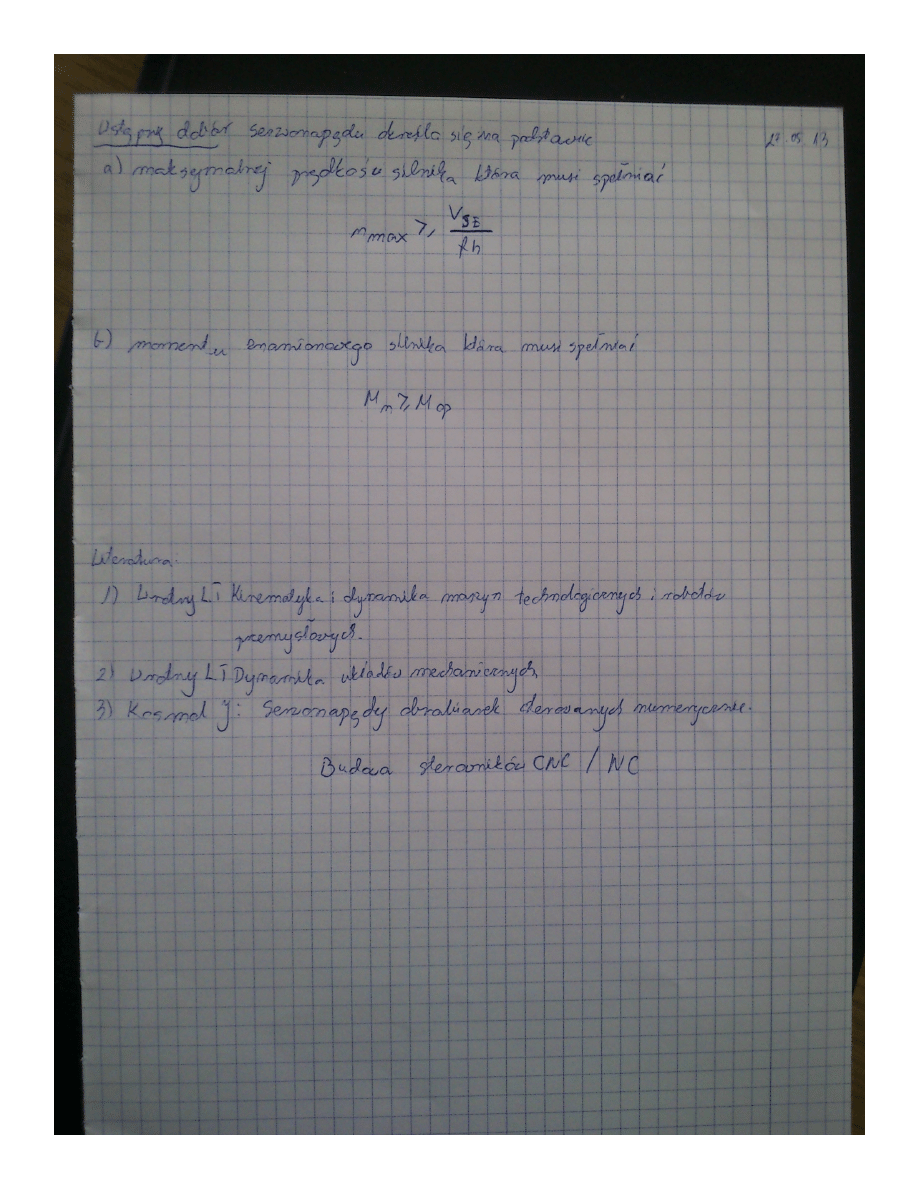 Wstępny dobór serwonapędu określa się na podstawie 27.05.13
a) maksymalnej prędkości silnika która musi spełniać
n max ≥ V SZ / ph
b) momentu znamionowego silnika która musi spełniać
M n ≥ M op
Literatura:
1) Wrotny LT Kinematyka i dynamika maszyn technologicznych i robotów
przemysłowych.
2) Wrotny LT Dynamika układów mechanicznych
3) Kosmol J: Serwonapędy obrabiarek sterowanych numerycznie.
Budowa sterowników CNC / NC